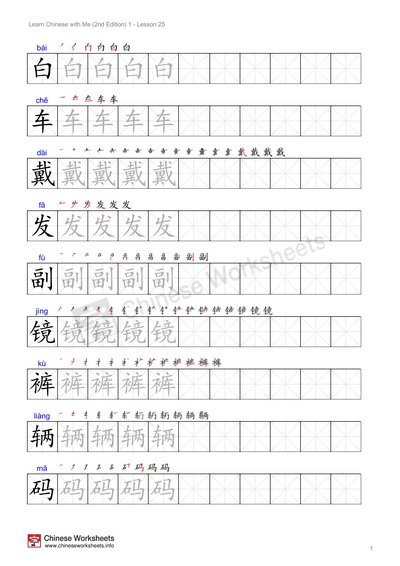 Learn Chinese with Me (2nd Edition) 1 - Lesson 25
bái
白 白 白 白 白
chē
车 车 车 车 车
dài
戴 戴 戴 戴 戴
fā
发 发 发 发 发
fù
副 副 副 副 副
jìng
镜 镜 镜 镜 镜
kù
裤 裤 裤 裤 裤
liàng
辆 辆 辆 辆 辆
mǎ
码 码 码 码 码
Chinese Worksheets
Chinese Worksheets
www.chineseworksheets.info
1